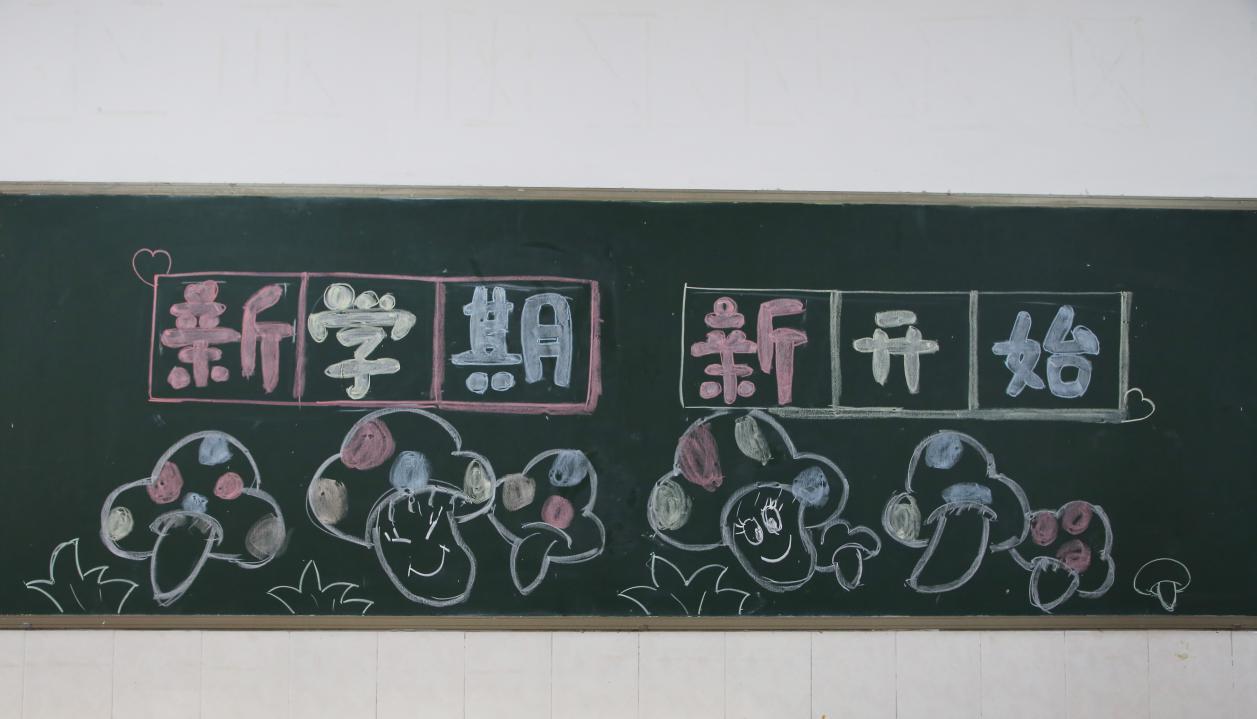 新学期 新开始